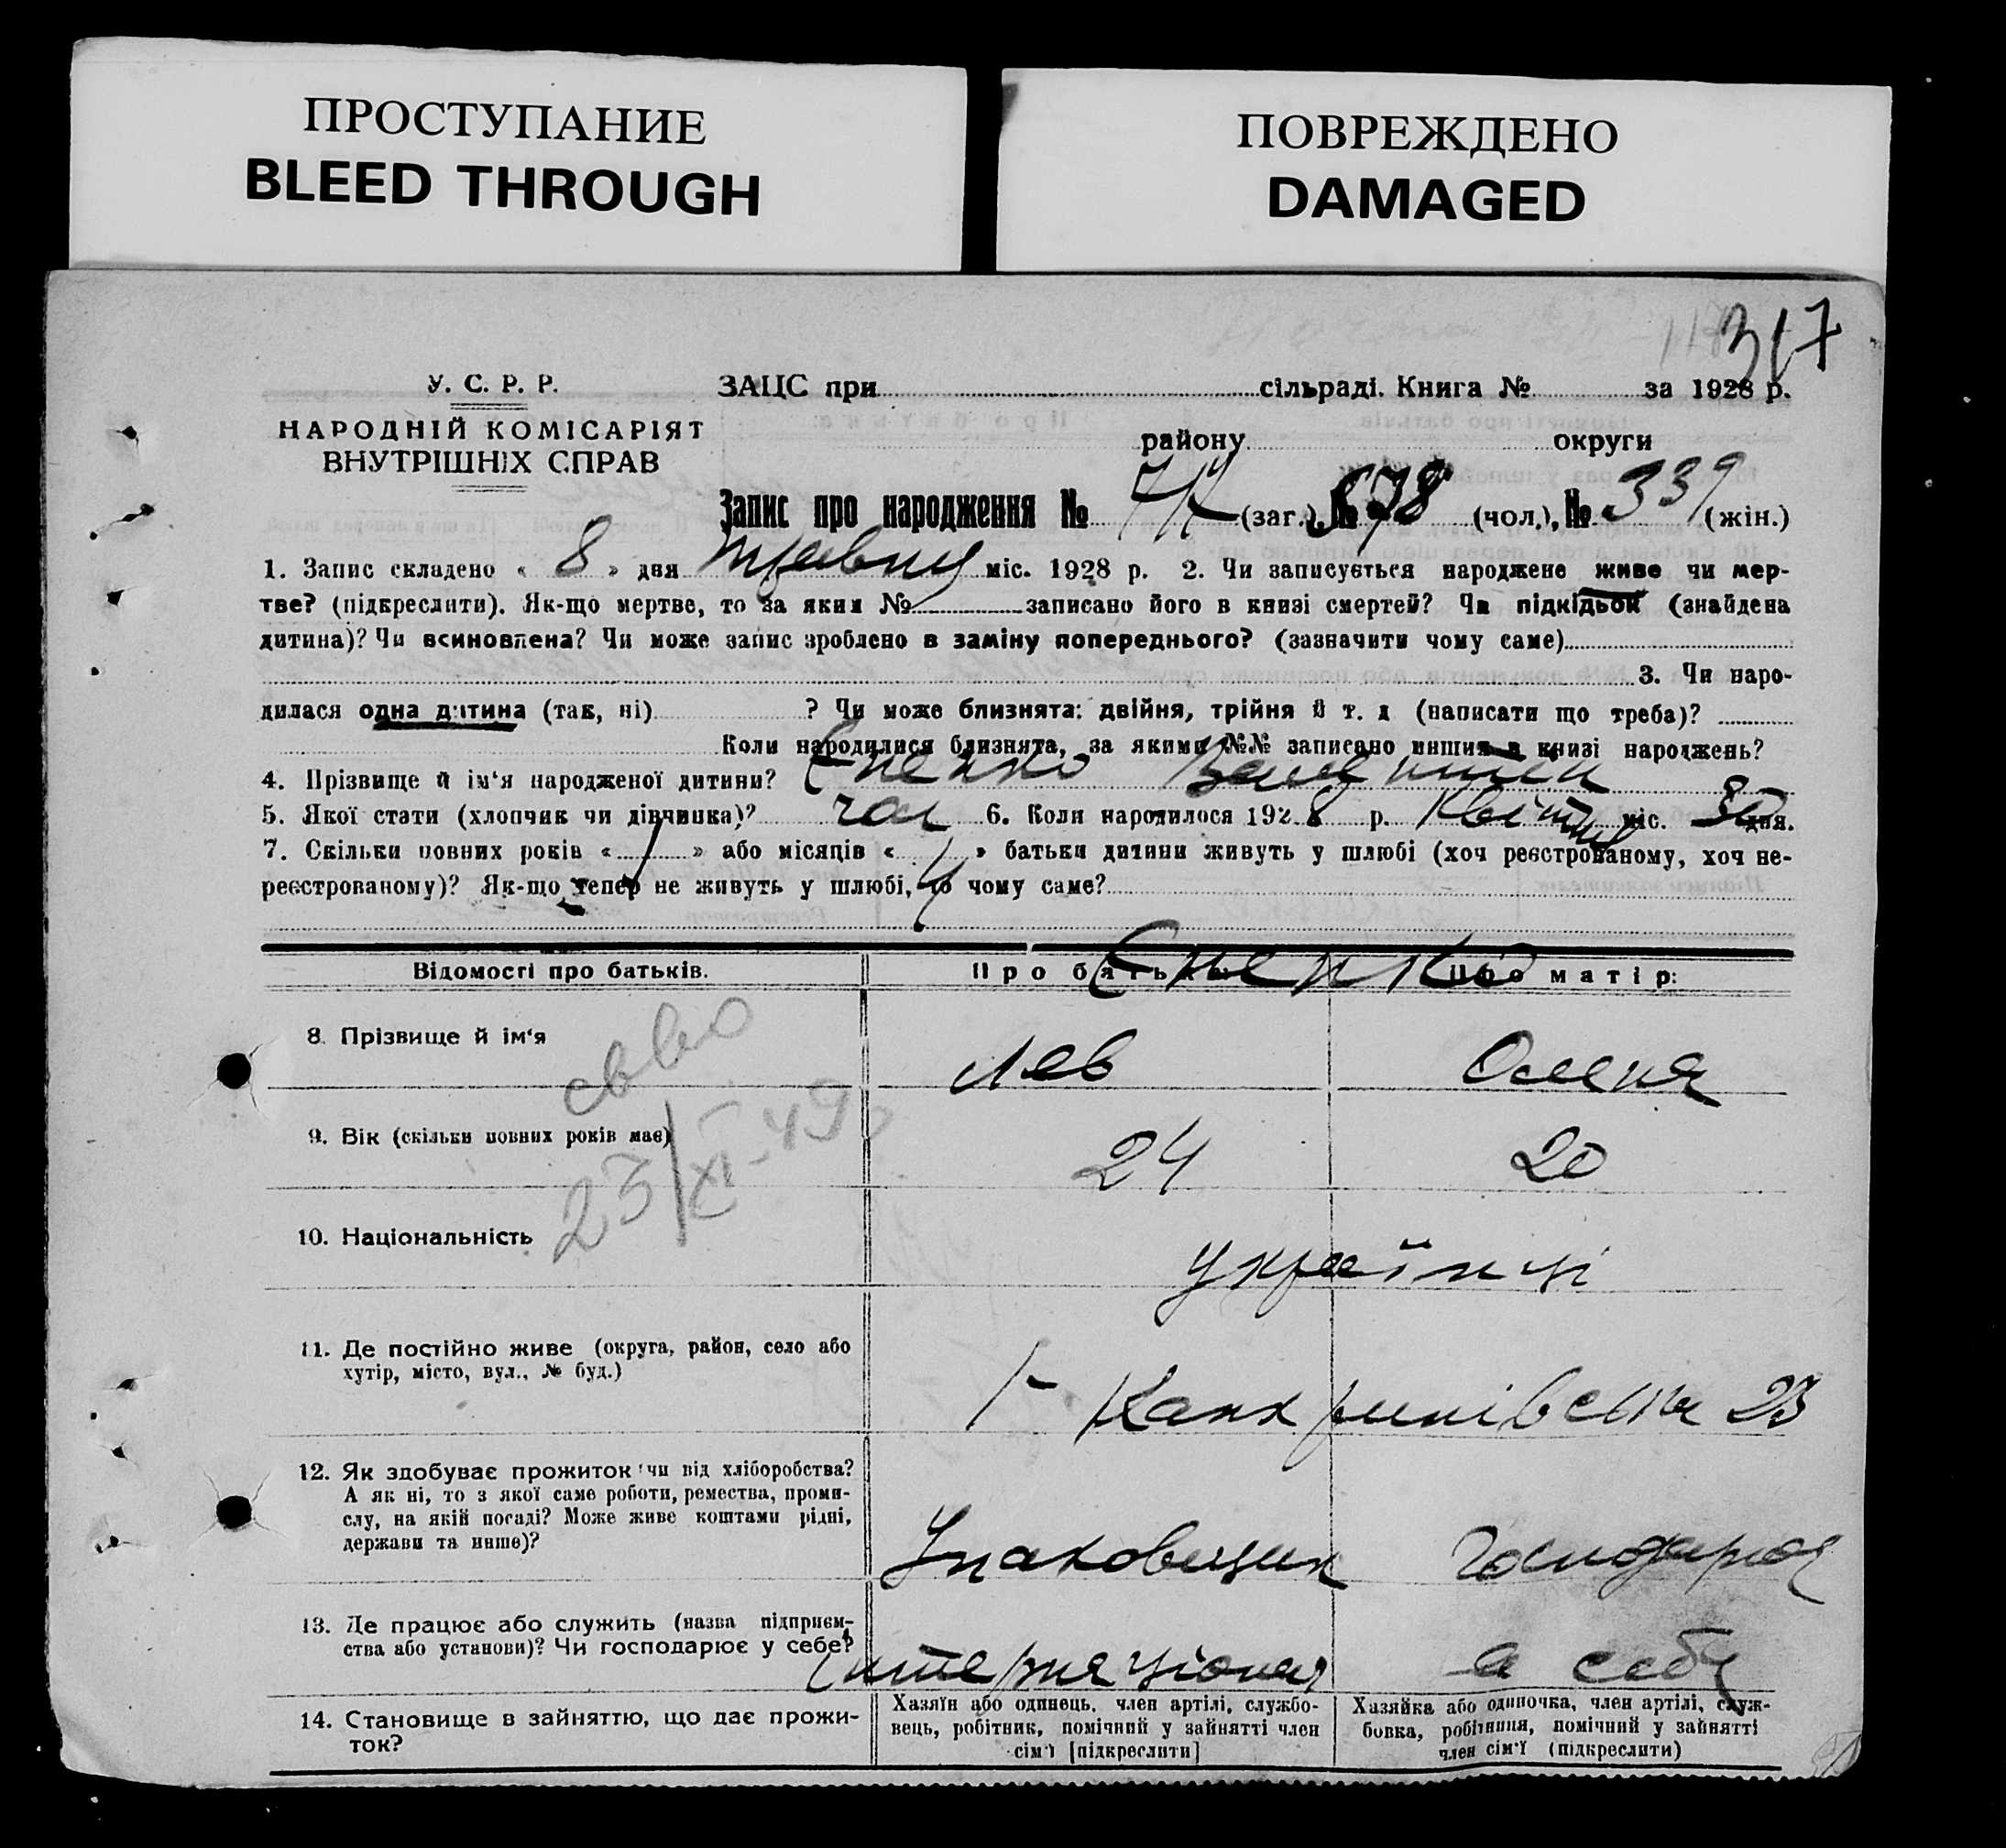 ПРОСТУПАНИЕ
BLEED THROUGH
ПОВРЕЖДЕНО
DAMAGED
317
У. С. Р. Р.
НАРОДНІЙ КОМІСАРІЯТ
ВНУТРІШНІХ СПРАВ
ЗАЦС при сільраді. Книга № за 1928 р.
району округи
Запис про народження № (заг.), № 378 (чол.), № 339 (жін.)
1. Запис складено « 8 » дня травня міс. 1928 р. 2. Чи записується народжене живе чи мер-
тве? (підкреслити). Як-що мертве, то за яким № записано його в книзі смертей? Чи підкідьок (знайдена
дитина)? Чи всиновлена? Чи може запис зроблено в заміну попереднього? (зазначити чому саме)
3. Чи наро-
дилася одна дитина (так, ні) ? Чи може близнята: двійня, трійня й т. д (написати що треба)?
Коли народилися близнята, за якими №№ записано инших в книзі народжень?
4. Прізвище й ім'я народженої дитини? Єненко Валентин
5. Якої стати (хлопчик чи дівчинка)? чол 6. Коли народилося 1928 р. Квітня міс. дня.
7. Скільки повних років « 1 » або місяців « » батьки дитини живуть у шлюбі (хоч реєстрованому, хоч не-
реєстрованому)? Як-що тепер не живуть у шлюбі, то чому саме?
Відомості про батьків. Про батька: Про матір:
Єненко
8. Прізвище й ім'я Лев Олена
свво
9. Вік (скільки повних років має) 24 20
23/XI-49
10. Національність українці
11. Де постійно живе (округа, район, село або
хутір, місто, вул., № буд.)
Канкринівська 23
12. Як здобуває прожиток чи від хліборобства?
А як ні, то з якої саме роботи, ремества, проми-
слу, на якій посаді? Може живе коштами рідні,
держави та инше)?
Упаковщик
13. Де працює або служить (назва підприєм-
ства або установи)? Чи господарює у себе?
Інтернаціонал в себе
14. Становище в зайняттю, що дає прожи-
ток?
Хазяїн або одинець, член артілі, службо-
вець, робітник, помічний у зайнятті член
сім'ї [підкреслити]
Хазяйка або одиночка, член артілі, служ-
бовка, робітниця, помічний у зайнятті
член сім'ї (підкреслити)